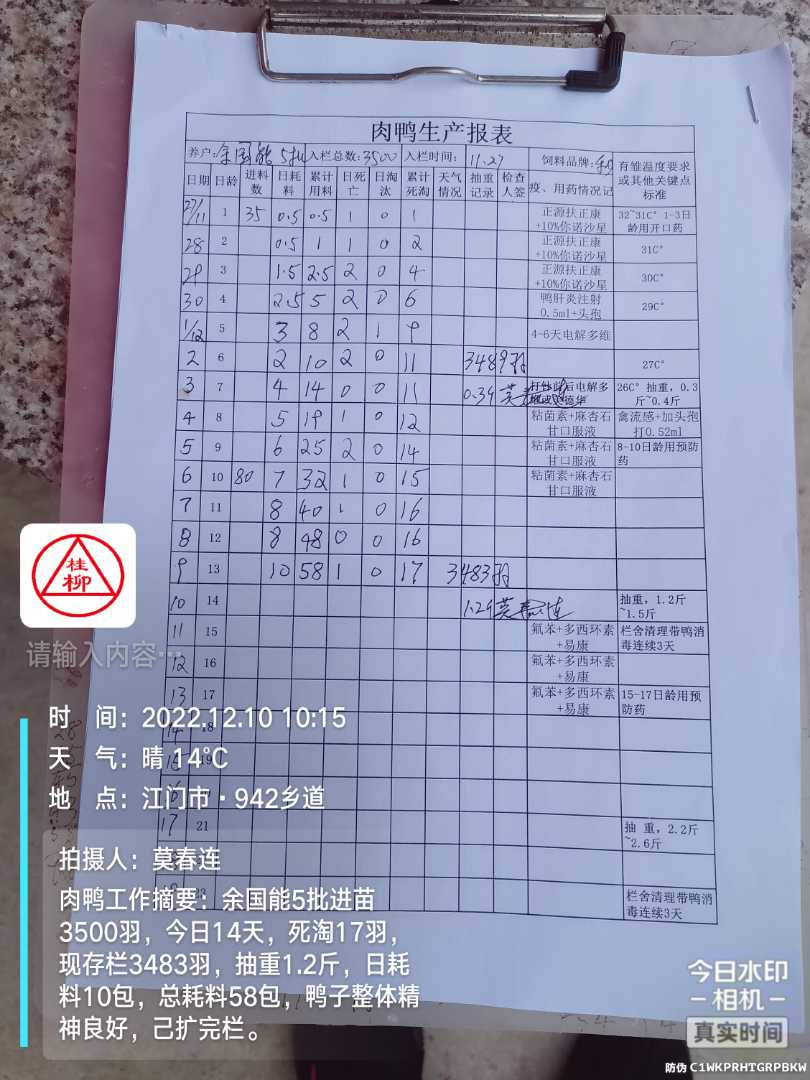 肉鸭生产报表
养户: 余国能 5批 入栏总数: 3500 入栏时间: 11.27 饲料品牌:
日期 日龄 进料数 日耗料 累计用料 日死亡 日淘汰 累计死淘 天气情况 抽重记录 检查人签 疫、用药情况记 有雏温度要求或其他关键点标准
27/11 1 35 0.5 0.5 1 0 1 正源扶正康+10%你诺沙星 32~31C° 1-3日龄用开口药
28 2 0.5 1 1 0 2 正源扶正康+10%你诺沙星 31C°
29 3 1.5 2.5 2 0 4 正源扶正康+10%你诺沙星 30C°
30 4 2.5 5 2 0 6 鸭肝炎注射0.5ml+头孢 29C°
1/12 5 3 8 2 1 9 4-6天电解多维
2 6 2 10 2 0 11 3489羽 27C°
3 7 4 14 0 0 11 0.39 26C° 抽重，0.3斤~0.4斤
4 8 5 19 1 0 12 粘菌素+麻杏石甘口服液 禽流感+加头孢打0.52ml
5 9 6 25 2 0 14 粘菌素+麻杏石甘口服液 8-10日龄用预防药
6 10 80 7 32 1 0 15 粘菌素+麻杏石甘口服液
7 11 8 40 1 0 16
8 12 8 48 0 0 16
9 13 10 58 1 0 17 3483羽
10 14 1.29 莫春连 抽重，1.2斤~1.5斤
11 15 氟苯+多西环素+易康 栏舍清理带鸭消毒连续3天
12 16 氟苯+多西环素+易康
13 17 氟苯+多西环素+易康 15-17日龄用预防药
14 18
15 19
16
17 21 抽 重，2.2斤~2.6斤
23 栏舍清理带鸭消毒连续3天
桂
柳
请输入内容…
时 间: 2022.12.10 10:15
天 气: 晴 14℃
地 点: 江门市·942乡道
拍摄人: 莫春连
肉鸭工作摘要: 余国能5批进苗
3500羽，今日14天，死淘17羽，
现存栏3483羽，抽重1.2斤，日耗
料10包，总耗料58包，鸭子整体精
神良好，己扩完栏。
今日水印
相机
真实时间
防伪 C1WKPRHTGRPBKW